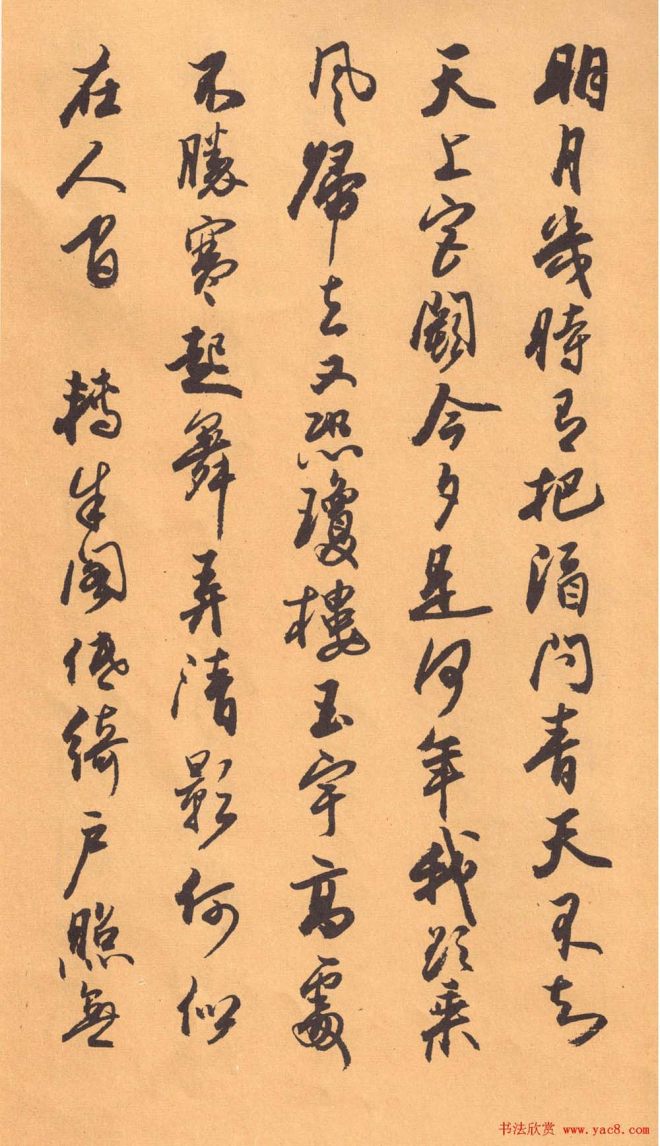 明月幾時有把酒問青天不知
天上宮闕今夕是何年我欲乘
風歸去又恐瓊樓玉宇高處
不勝寒起舞弄清影何似
在人間 轉朱閣低綺戶照無
书法欣赏 www.yac8.com